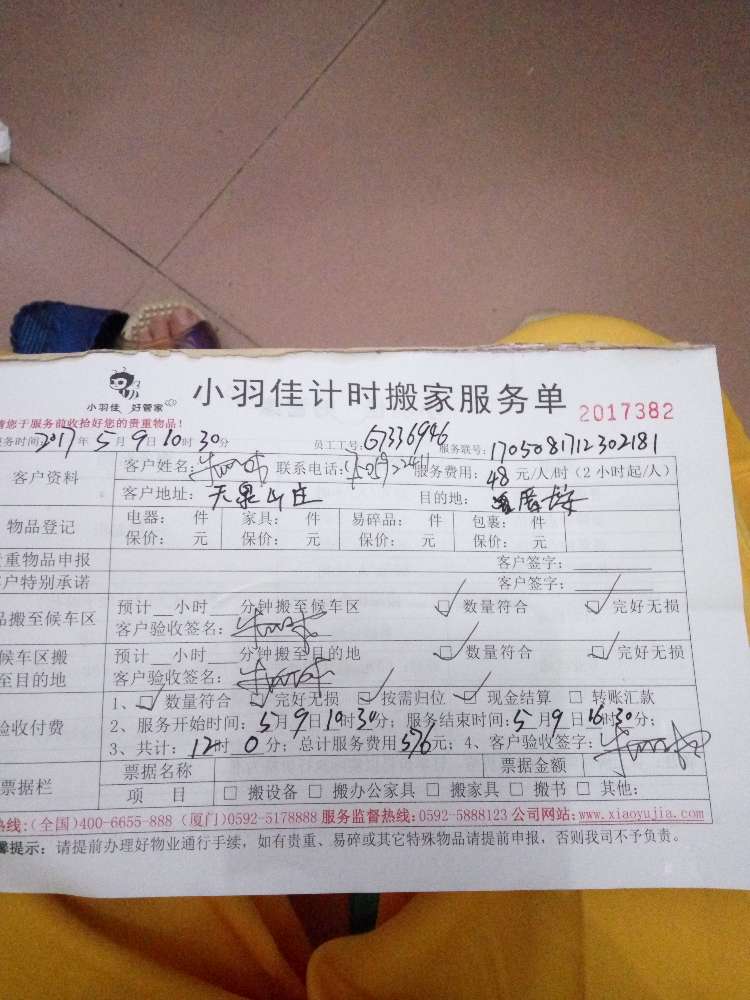 小羽佳 好管家
小羽佳计时搬家服务单 2017382
您于服务前收拾好您的贵重物品!
务时间2017年5月9日10时30分 员工工号:67336946 服务联号:1705081712302181
客户资料 客户姓名: 联系电话: 服务费用:48元/人/时(2小时起/人)
客户地址:天泉山庄 目的地:
物品登记 电器: 件 家具: 件 易碎品: 件 包裹: 件
保价: 元 保价: 元 保价: 元 保价: 元
重物品申报 客户签字:
户特别承诺 客户签字:
品搬至候车区 预计__小时__分钟搬至候车区 ☑数量符合 ☑完好无损
客户验收签名:
候车区搬 预计__小时__分钟搬至目的地 ☑数量符合 ☑完好无损
至目的地 客户验收签名:
验收付费 1、☑数量符合 ☑完好无损 ☑按需归位 ☑现金结算 □转账汇款
2、服务开始时间:5月9日10时30分;服务结束时间:5月9日16时30分;
3、共计:12时0分;总计服务费用576元;4、客户验收签字:
票据栏 票据名称 票据金额
项 目 □搬设备 □搬办公家具 □搬家具 □搬书 □其他:
热线:(全国)400-6655-888 (厦门)0592-5178888 服务监督热线:0592-5888123 公司网站:www.xiaoyujia.com
馨提示:请提前办理好物业通行手续,如有贵重、易碎或其它特殊物品请提前申报,否则我司不予负责。